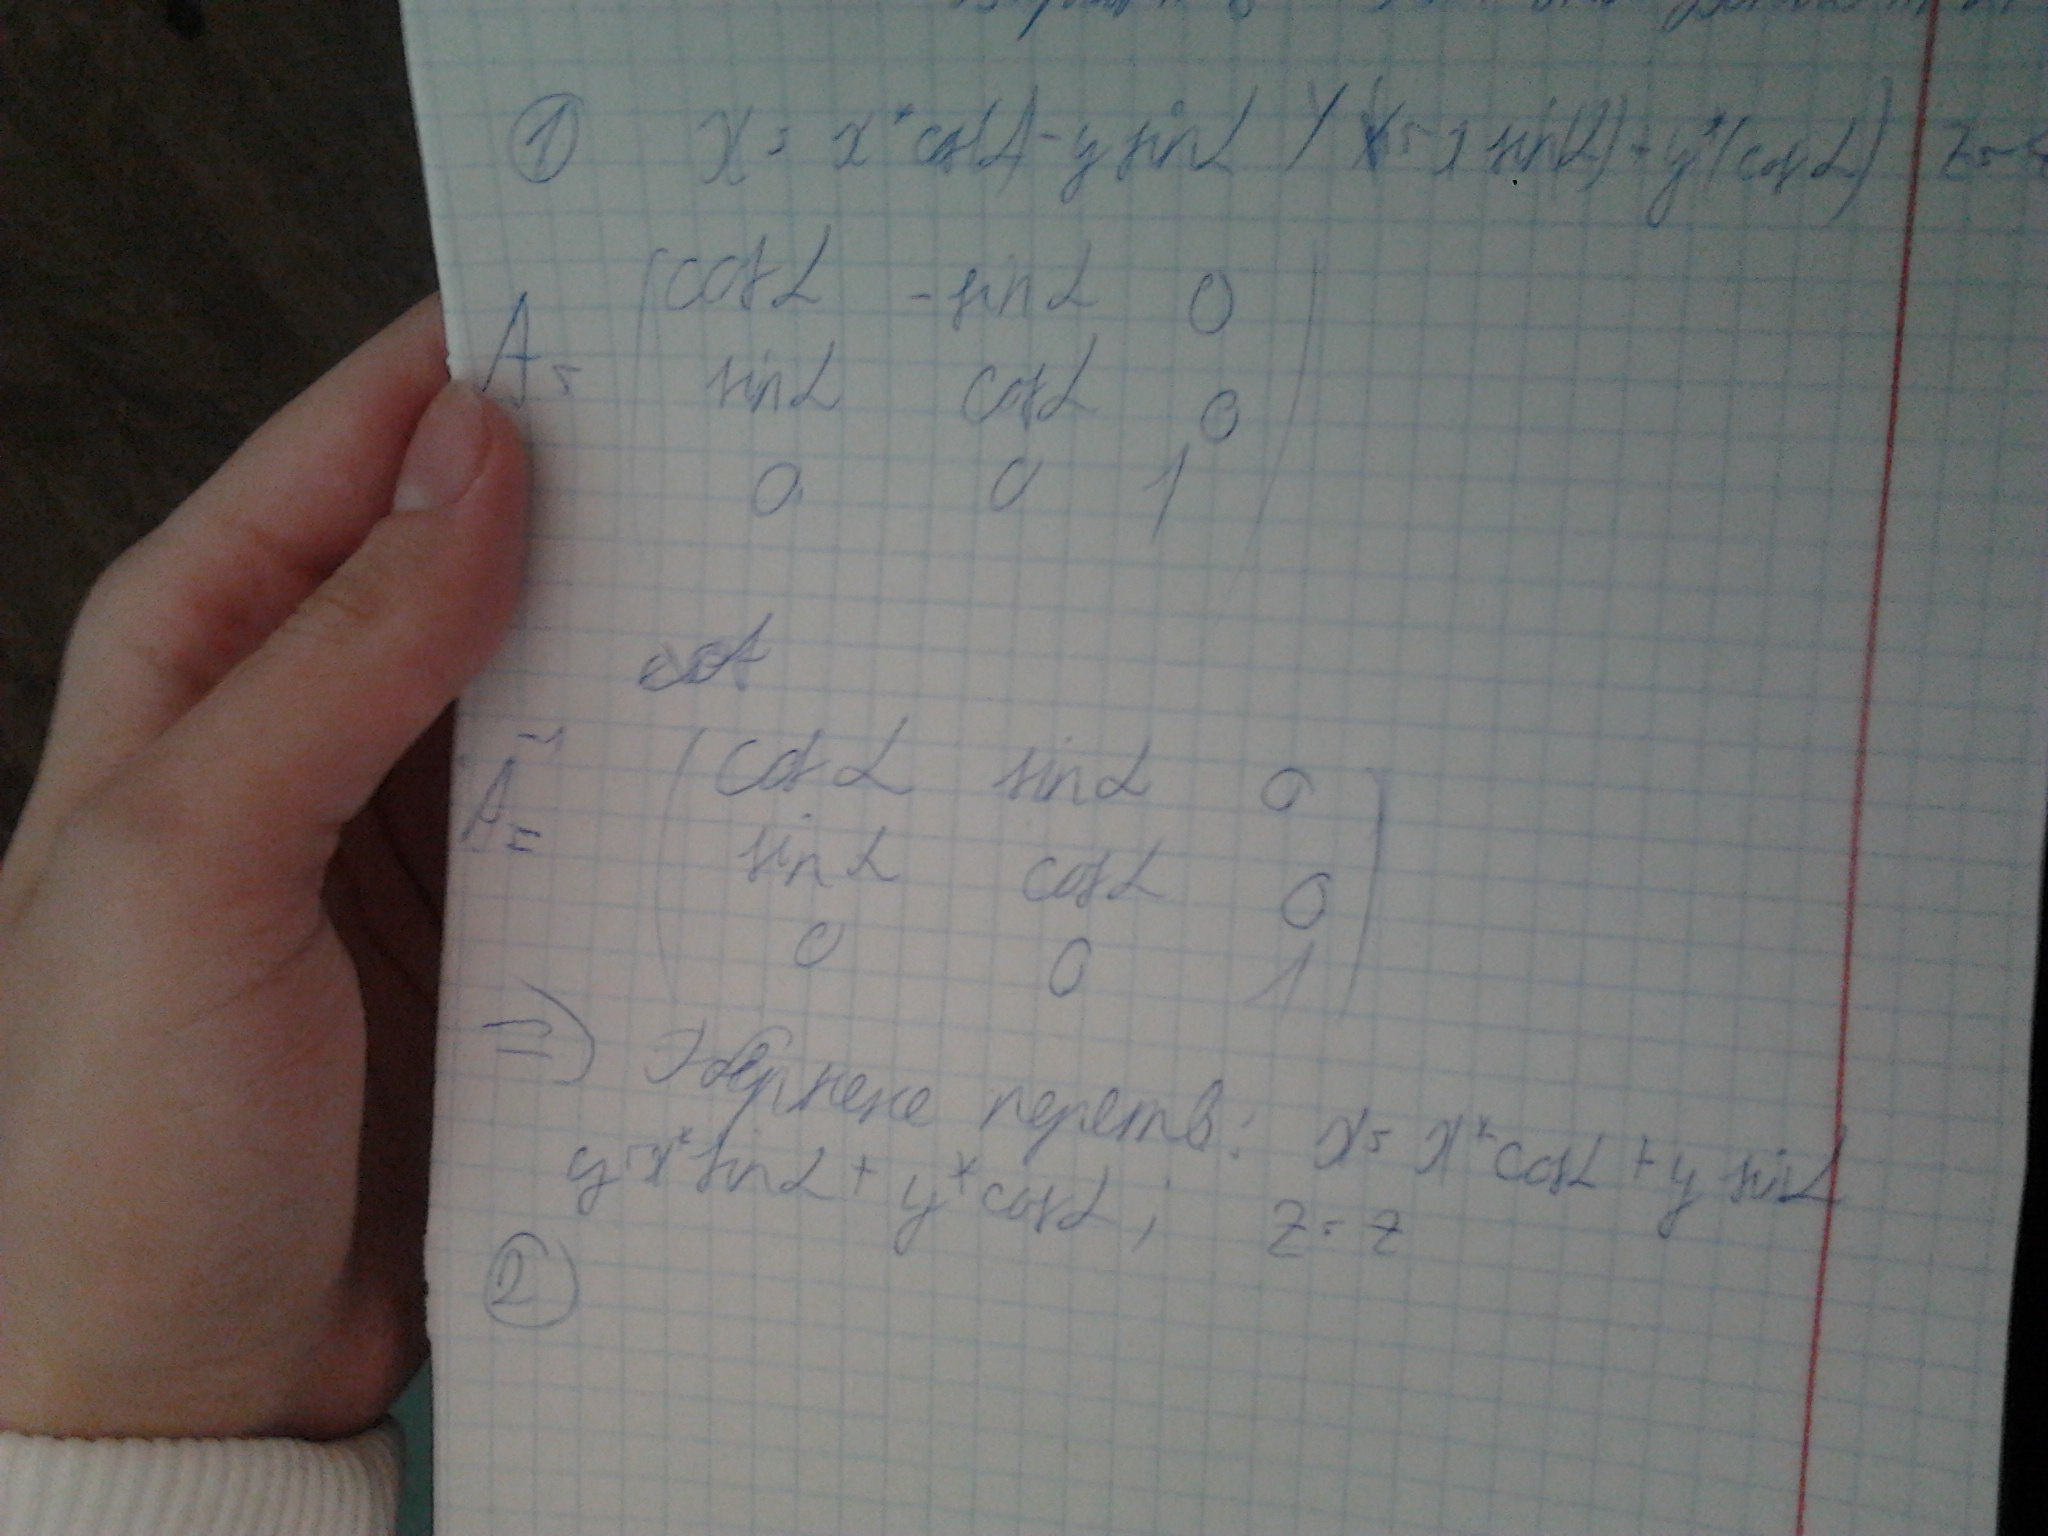 ① x = x* cos(α) - y sin α / y = x sin(α) + y*(cos α) z =
A = ( cos α -sin α 0
sin α cos α 0
0 0 1 )
A⁻¹ = ( cos α sin α 0
sin α cos α 0
0 0 1 )
=> Обернене перетв: x = x* cos α + y sin α
y = x* sin α + y* cos α; z = z
②